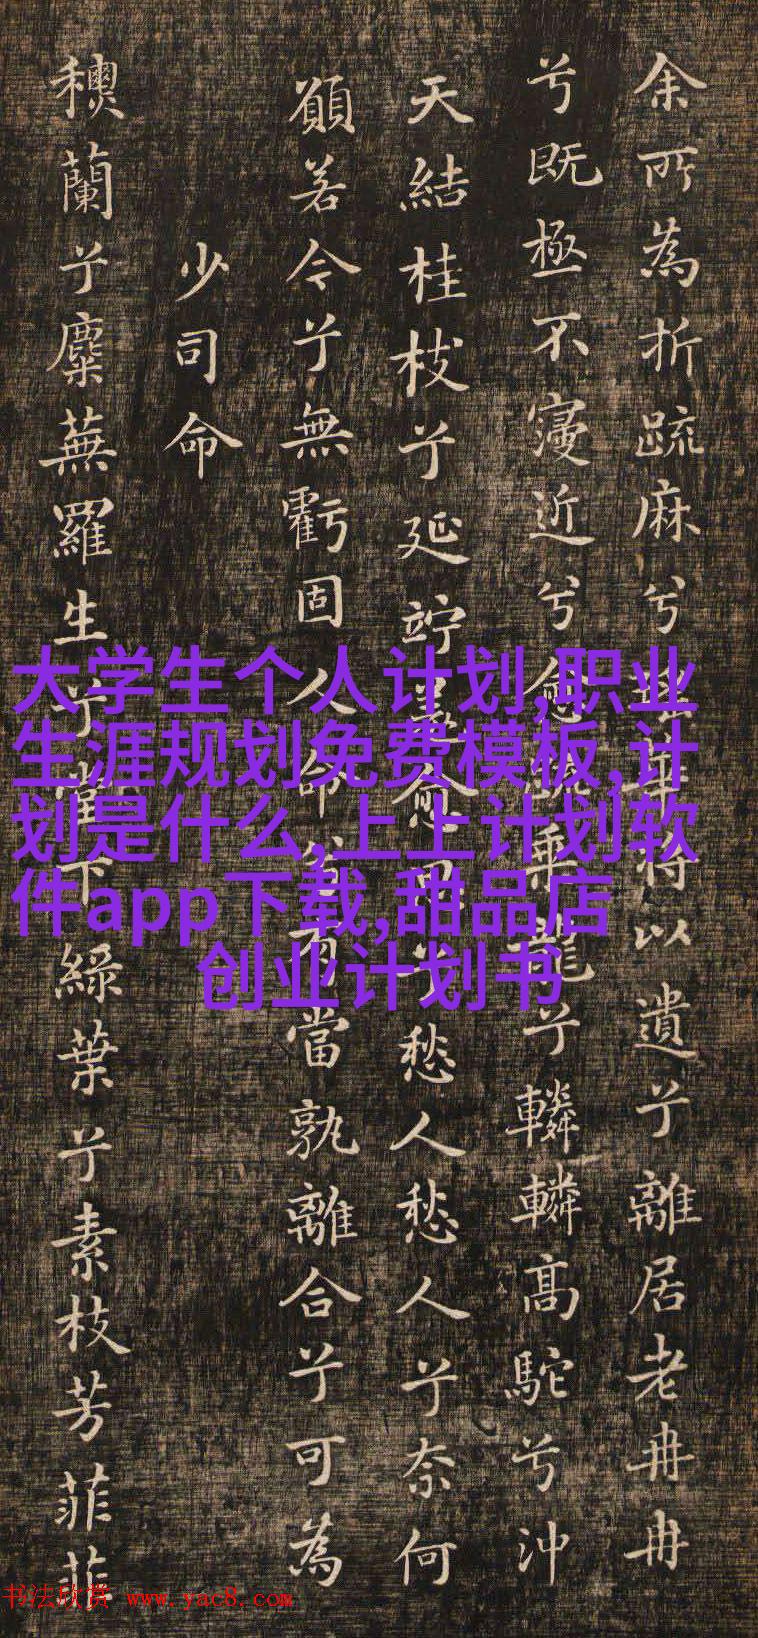 余所為折䟽麻兮華將以遺兮離居老冉冉
兮既極不寖近兮愈䟽乘龍兮轔轔高駝兮沖
天結桂枝兮延竚羌愈思兮愁人愁人兮奈何
願若今兮無虧固人命兮有當孰離合兮可為
少司命
蘭兮麋蕪羅生兮堂下綠葉兮素枝芳菲菲
大学生个人计划,职业
生涯规划免费模板,计
划是什么,上上计划软
件app下载,甜品店
创业计划书
书法欣赏 www.yac8.com